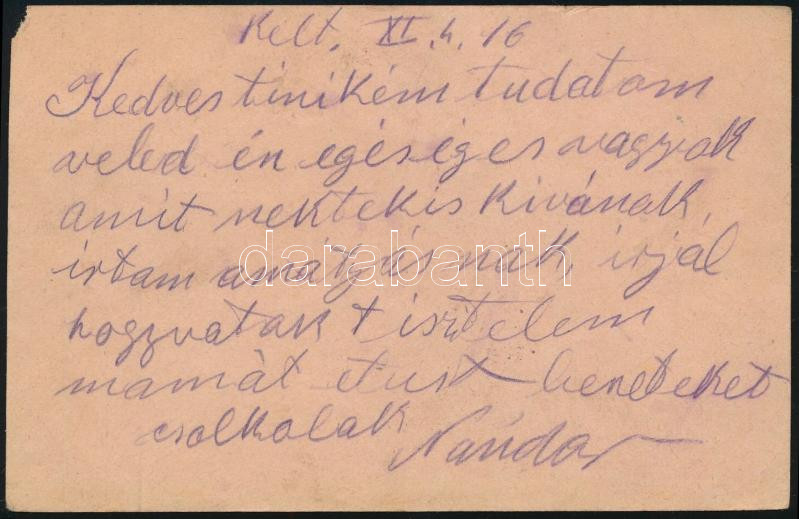 Kelt, XI. h. 16
Kedves tinikém tudatom
veled én egéséges vagyok
amit nektekis kivánok,
irtam a mátyásnak, irjál
hogyvatak tisztelem
mamát etust beneteket
csolkolak Nándor
darabanth